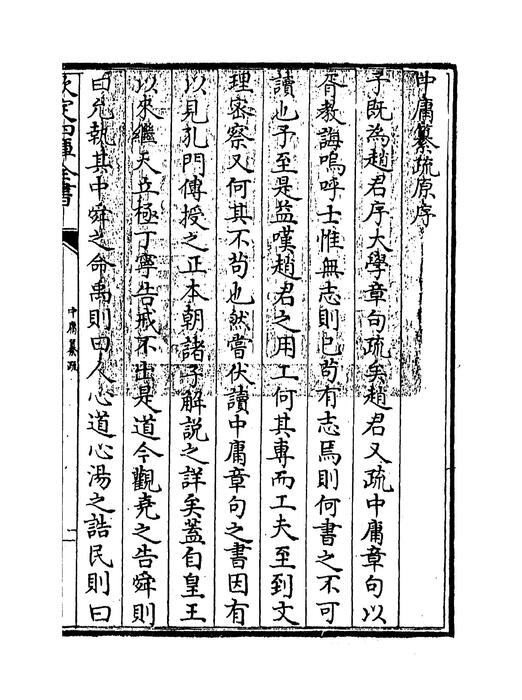 中庸纂疏原序
予既為趙君序大學章句疏矣趙君又疏中庸章句以
胥教誨嗚呼士惟無志則已茍有志焉則何書之不可
讀也予至是益嘆趙君之用工何其專而工夫至到文
理密察又何其不茍也然嘗伏讀中庸章句之書因有
以見孔門傳授之正本朝諸子解説之詳矣蓋自皇王
以來繼天立極丁寧告戒不出是道今觀堯之告舜則
曰允執其中舜之命禹則曰人心道心湯之誥民則曰
欽定四庫全書
中庸纂疏
一